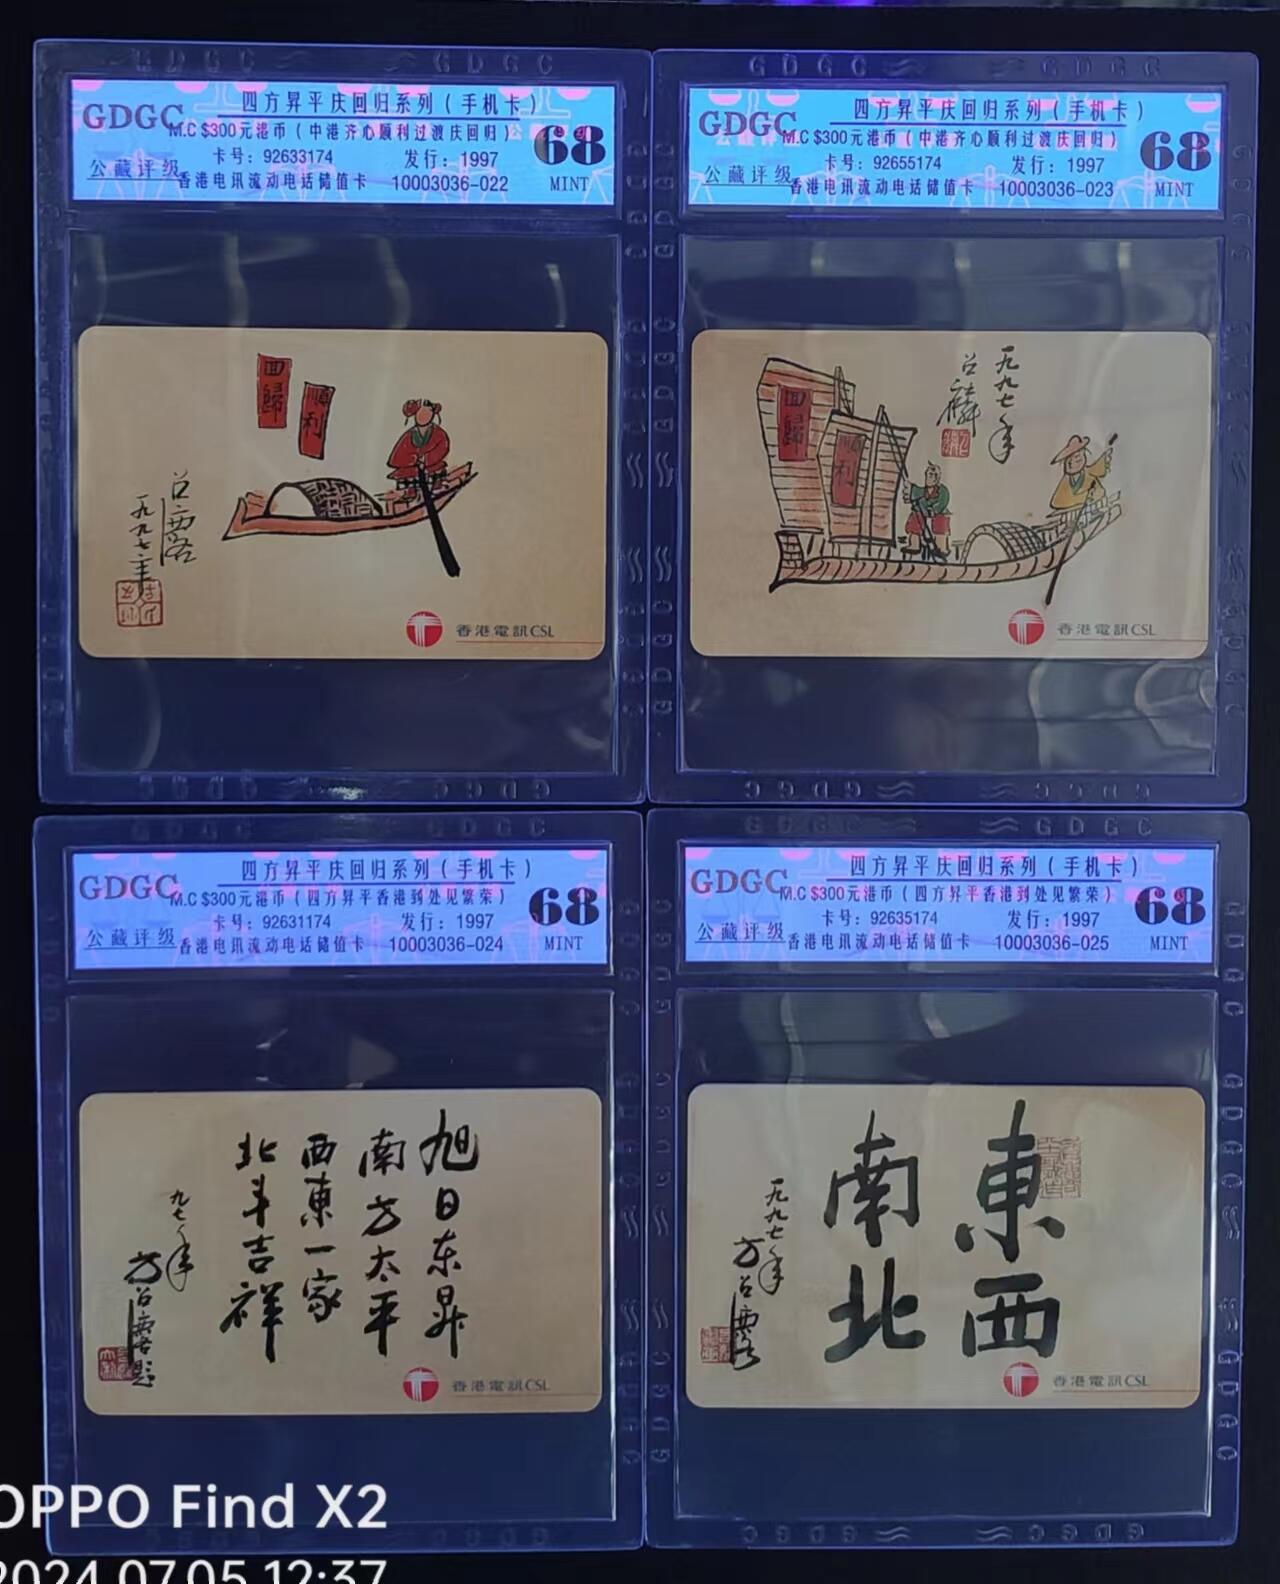 GDGC
公藏评级
四方昇平庆回归系列（手机卡）
M.C $300元港币（中港齐心顺利过渡庆回归）
卡号：92633174 发行：1997
香港电讯流动电话储值卡 10003036-022
68
MINT
回歸
順利
召麐
一九九七年
香港電訊CSL
GDGC
公藏评级
四方昇平庆回归系列（手机卡）
M.C $300元港币（中港齐心顺利过渡庆回归）
卡号：92655174 发行：1997
香港电讯流动电话储值卡 10003036-023
68
MINT
回歸
順利
一九九七年
召麟
香港電訊CSL
GDGC
公藏评级
四方昇平庆回归系列（手机卡）
M.C $300元港币（四方昇平香港到处见繁荣）
卡号：92631174 发行：1997
香港电讯流动电话储值卡 10003036-024
68
MINT
旭日东昇
南方太平
西東一家
北斗吉祥
九七年
方召麐題
香港電訊CSL
GDGC
公藏评级
四方昇平庆回归系列（手机卡）
M.C $300元港币（四方昇平香港到处见繁荣）
卡号：92635174 发行：1997
香港电讯流动电话储值卡 10003036-025
68
MINT
東西
南北
一九九七年
方召麐
香港電訊CSL
OPPO Find X2
2024.07.05 12:37